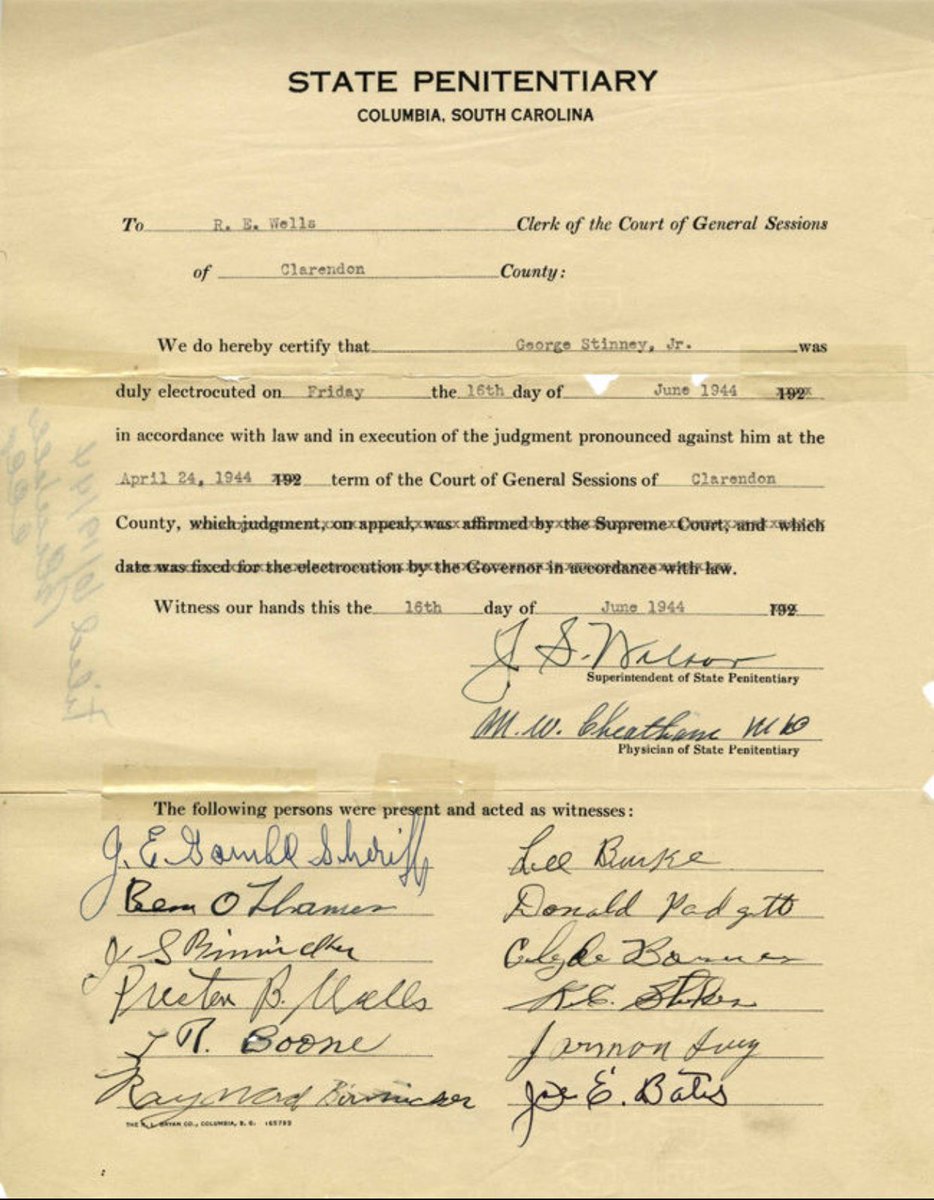 STATE PENITENTIARY
COLUMBIA, SOUTH CAROLINA
To R. E. Wells Clerk of the Court of General Sessions
of Clarendon County:
We do hereby certify that George Stinney, Jr. was
duly electrocuted on Friday the 16th day of June 1944 192
in accordance with law and in execution of the judgment pronounced against him at the
April 24, 1944 192 term of the Court of General Sessions of Clarendon
County, which judgment, on appeal, was affirmed by the Supreme Court, and which
date was fixed for the electrocution by the Governor in accordance with law.
Witness our hands this the 16th day of June 1944 192
J. S. Wilson
Superintendent of State Penitentiary
M. W. Cheatham MD
Physician of State Penitentiary
The following persons were present and acted as witnesses:
J. E. Gamble Sheriff Lee Burke
Ben O Thames Donald Padgett
J S Clyde
Preston B. R. E. Stokes
J R. Boone
Raymond Joe E. Bates
BRYAN CO., COLUMBIA, S. C.